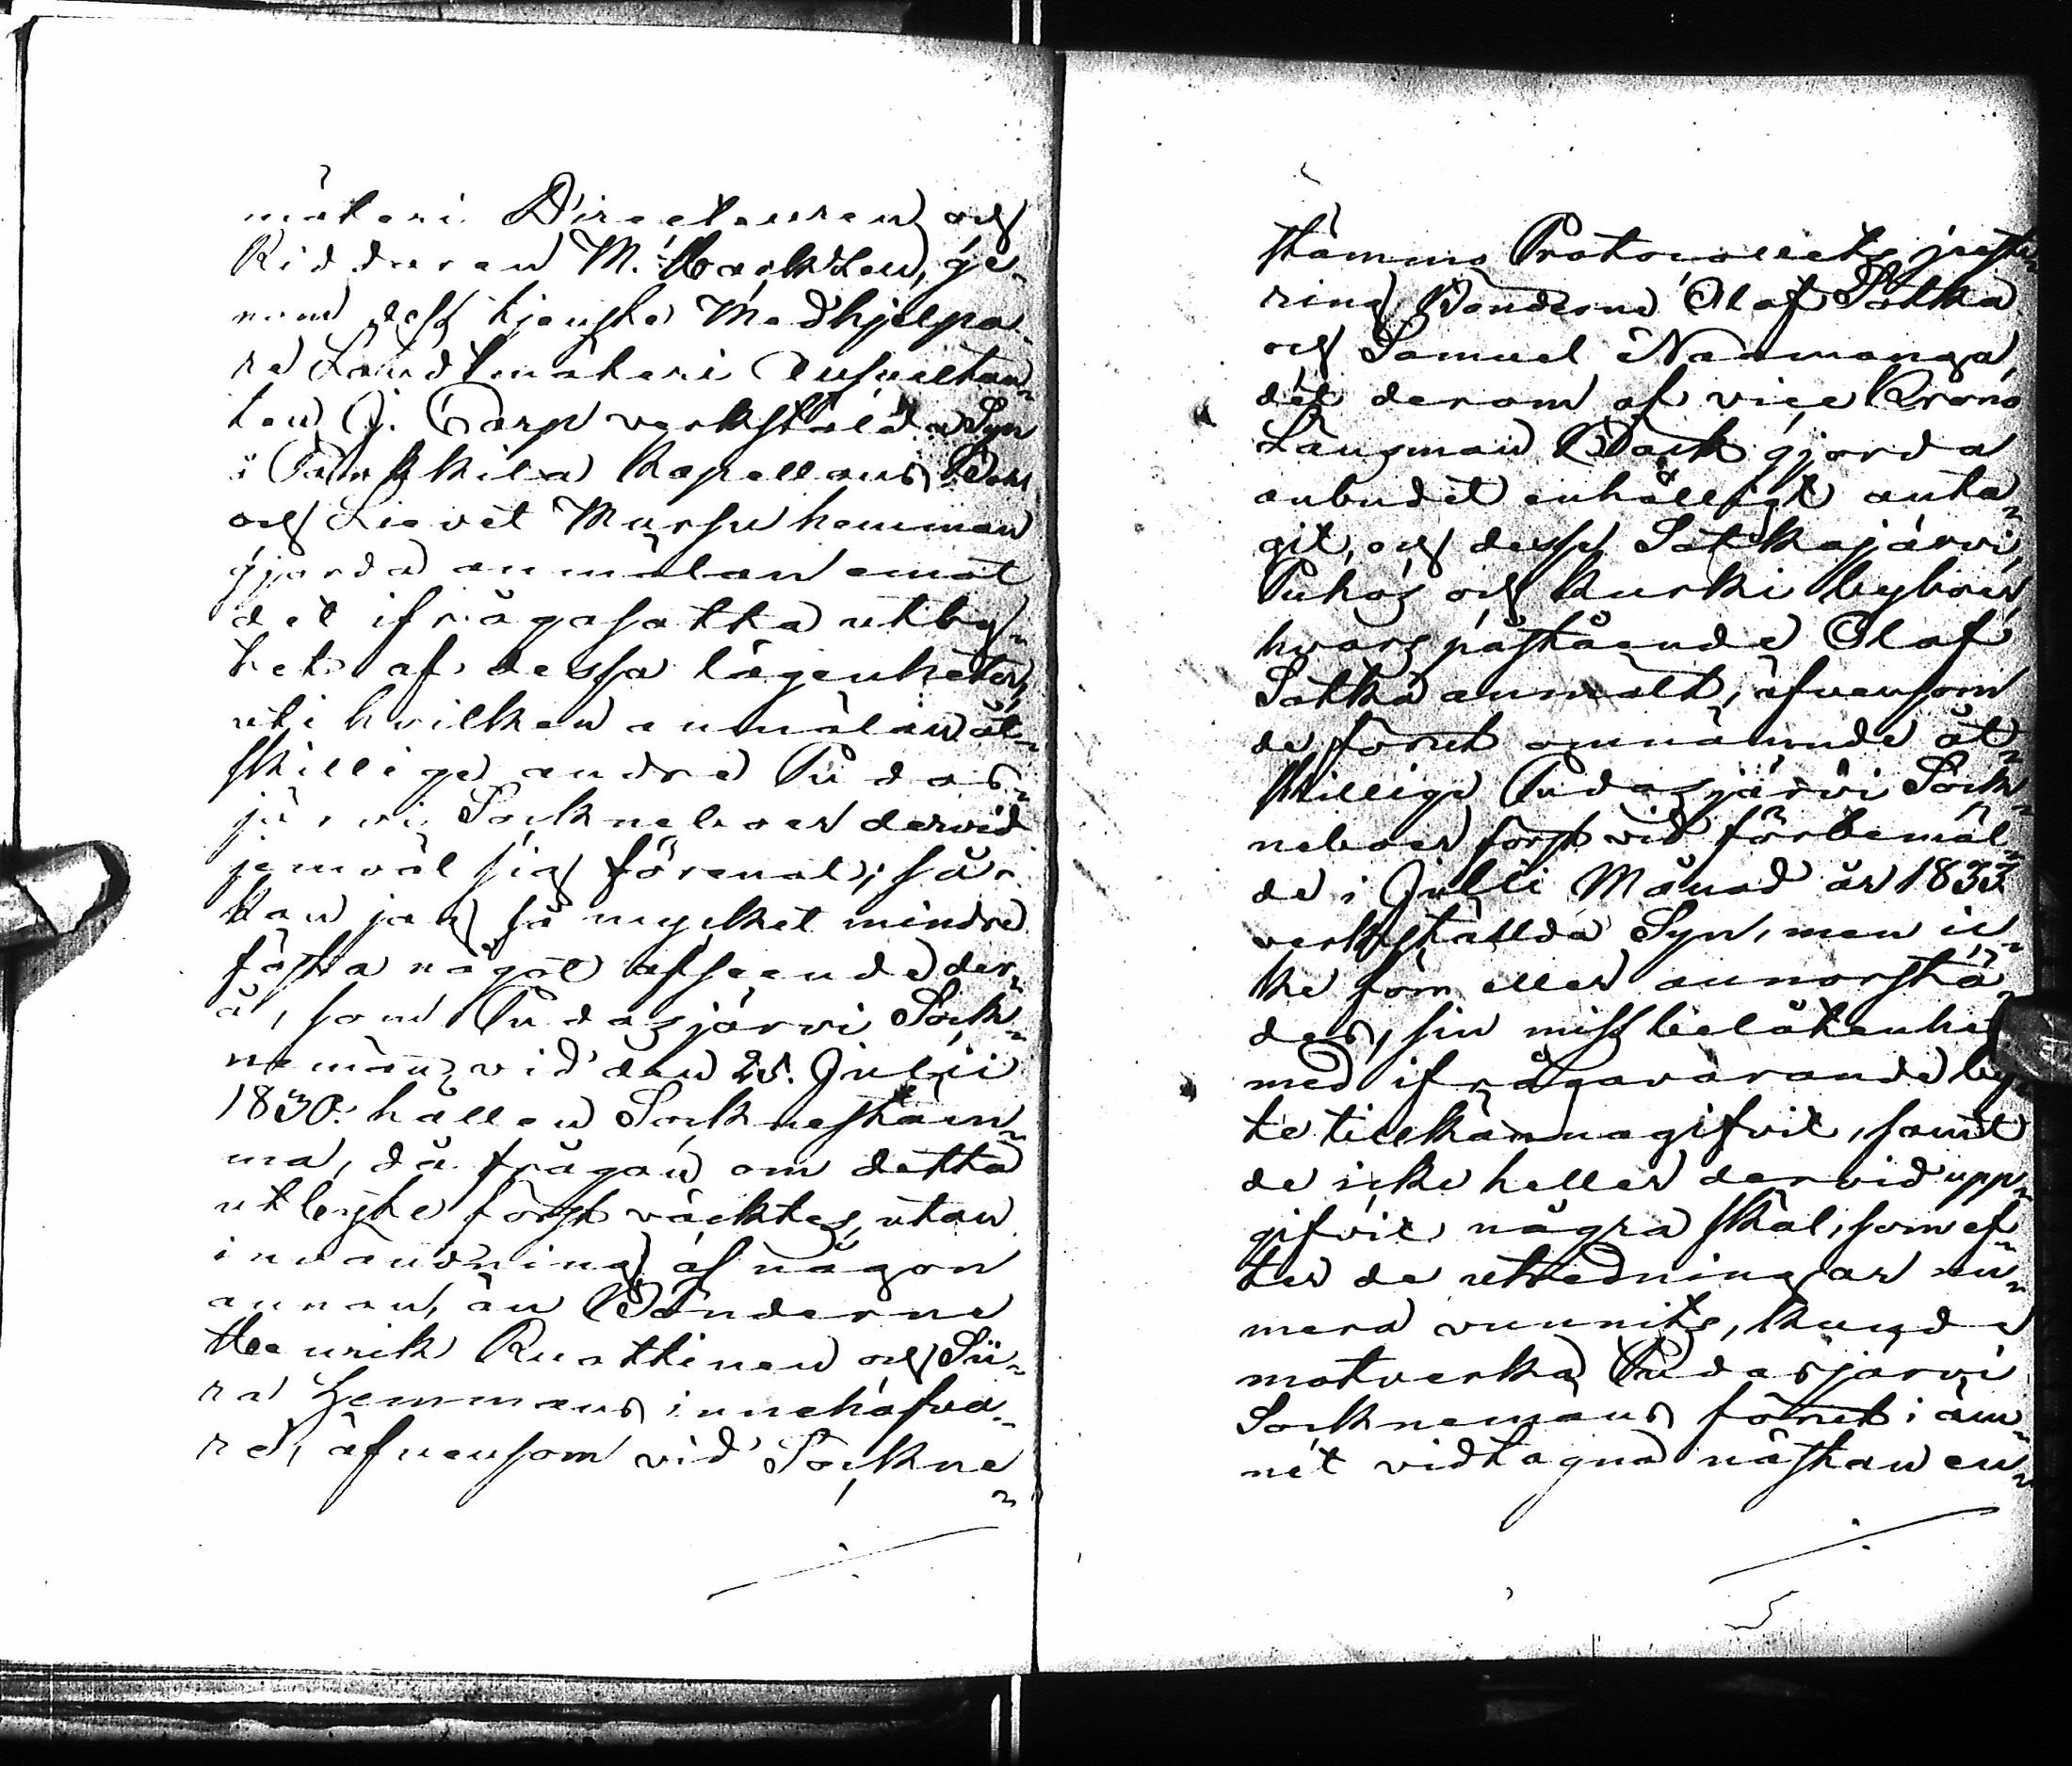 mäteri Directeuren och
Riddaren M. Wacklin, ge-
nom dess tjenste Medhjelpa
re Landtmäteri Auscultan-
ten J. Carp verkstälda Syn
i Taipskila Kapellans Bohl
och Lievet Mursu hemman
gjorda anmälan emot
det ifrågasatta utby-
tet af dessa lägenheter,
uti hvilken anmälan åt-
skillige andre Pudas-
järvi Sockneboer dervid
jemväl sig förenat; så
kan jag så mycket mindre
fästa något afseende der-
å, som Pudasjärvi Sock-
nemän vid den 25. Julii
1830. hållen Socknestäm-
ma, då frågan om detta
utbyte först väcktes, utan
invändning af någon
annan, än Bönderne
Henrik Ruottinen och Sii-
ra Hemmans innehafva-
re, äfvensom vid Sockne-
stämmo Protocollets juste-
ring Bönderne Olof Sotka
och Samuel Naamanga,
det derom af vice Krono
Länsman Back gjorda
anbudet enhälligt anta-
git, och desse Sotkajärvi,
Puhos och Kurki byboer,
hvars påstående Olof
Sotka anmält, äfvensom
de förut omnämnde åt-
skillige Pudasjärvi Sock-
neboer först vid förbemäl-
de i Julii Månad år 1833
verkställda Syn, men ic-
ke förr eller annorstä-
des, sin missbelåtenhet
med ifrågavarande by-
te tillkännagifvit, samt
de icke heller dervid upp-
gifvit några skäl, som ef-
ter de utredningar nu-
mera vunnits, kunde
motverka Pudasjärvi
Socknemäns förut i äm-
net vidtagna nästan en-